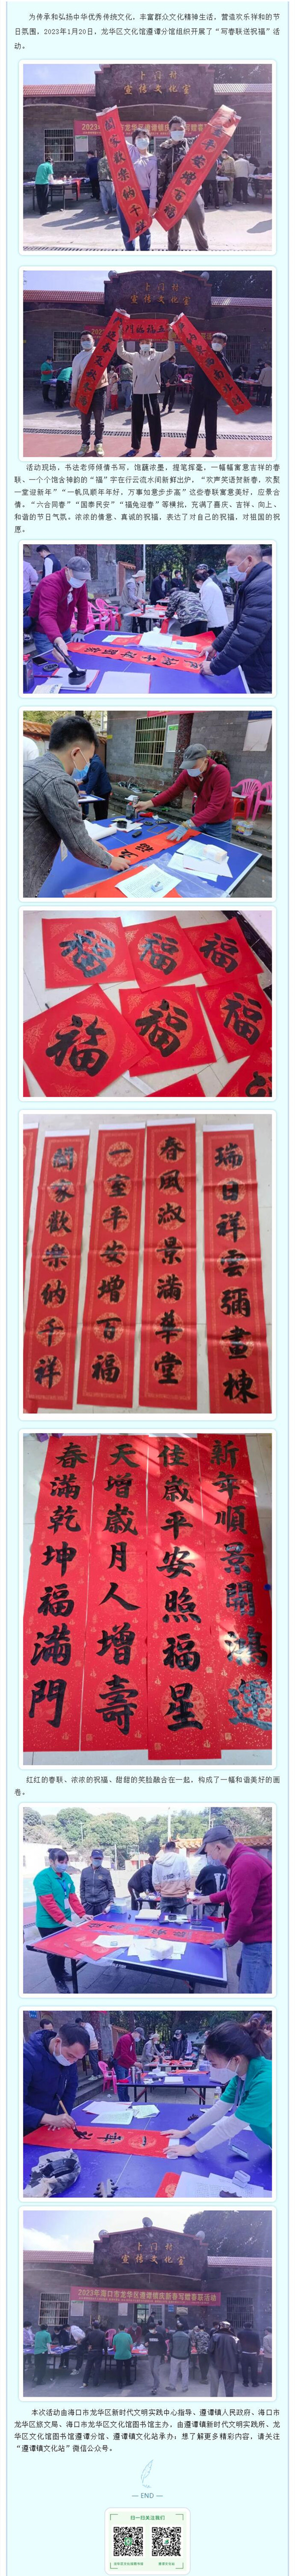 为传承和弘扬中华优秀传统文化，丰富群众文化精神生活，营造欢乐祥和的节
日氛围，2023年1月20日，龙华区文化馆遵谭分馆组织开展了“写春联送祝福”活
动。
卜门村
宣传文化室
阖家歡樂納千祥
卜门村
宣传文化室
活动现场，书法老师倾情书写，饱蘸浓墨，提笔挥毫，一幅幅寓意吉祥的春
联、一个个饱含神韵的“福”字在行云流水间新鲜出炉，“欢声笑语贺新春，欢聚
一堂迎新年”“一帆风顺年年好，万事如意步步高”这些春联寓意美好，应景合
情。“六合同春”“国泰民安”“福兔迎春”等横批，充满了喜庆、吉祥、向上、
和谐的节日气氛。浓浓的情意、真诚的祝福，表达了对自己的祝福，对祖国的祝
愿。
福
福
福
福
福
瑞日祥雲彌畫棟
春風淑景滿華堂
一室平安增百福
闔家歡樂納千祥
新年順景開鴻運
佳歲平安照福星
天增歲月人增壽
春滿乾坤福滿門
红红的春联、浓浓的祝福、甜甜的笑脸融合在一起，构成了一幅和谐美好的画
卷。
卜门村
宣传文化室
2023年海口市龙华区遵谭镇庆新春写赠春联活动
本次活动由海口市龙华区新时代文明实践中心指导、遵谭镇人民政府、海口市
龙华区旅文局、海口市龙华区文化馆图书馆主办，由遵谭镇新时代文明实践所、龙
华区文化馆图书馆遵谭分馆、遵谭镇文化站承办；想了解更多精彩内容，请关注
“遵谭镇文化站”微信公众号。
— END —
扫一扫关注我们